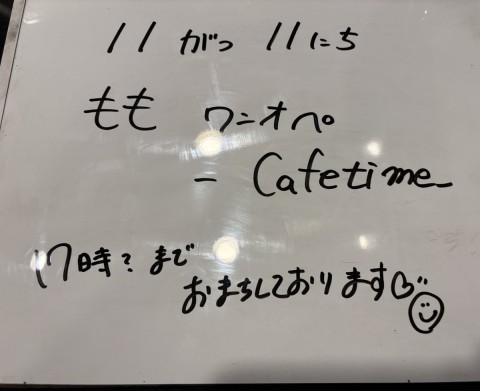 11がつ 11にち
もも ワンオペ
- Cafetime -
17時?まで
おまちしております♡